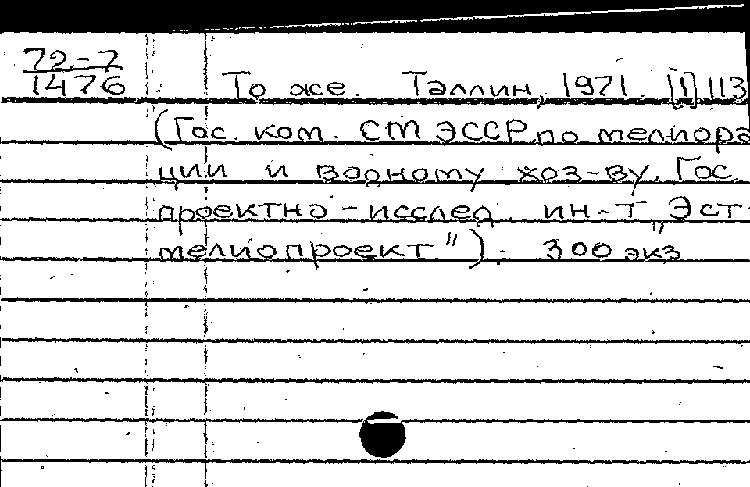 72-7
1476
То же. Таллин, 1971. [1] 113
(Гос. ком. СМ ЭССР по мелиора
ции и водному хоз-ву. Гос.
проектно-исслед. ин-т „Эст
мелиопроект"). 300 экз